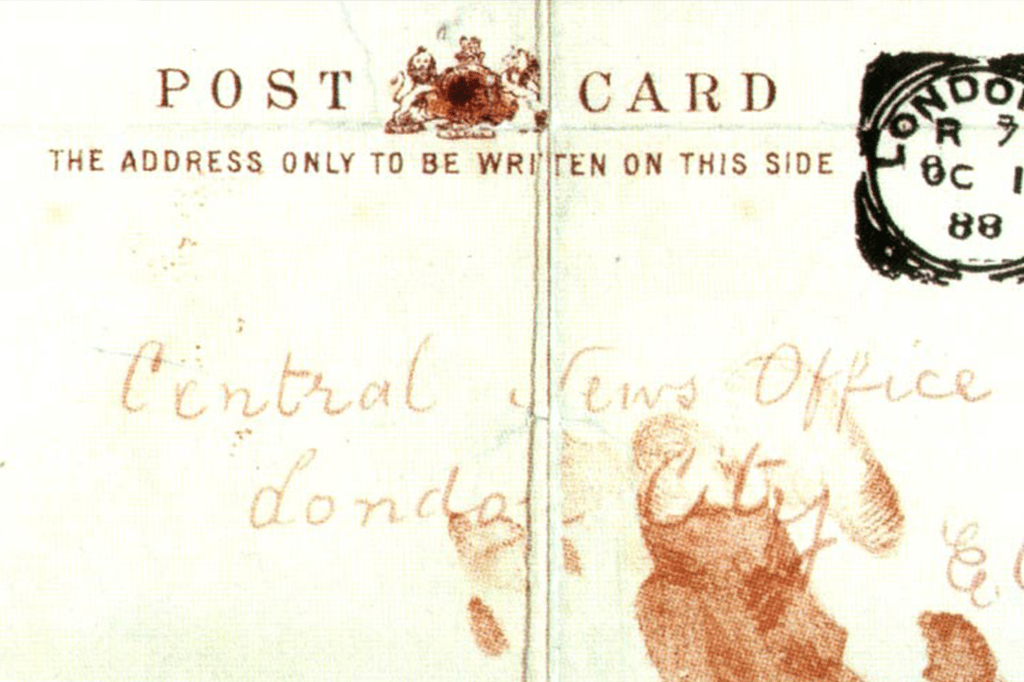 POST CARD
THE ADDRESS ONLY TO BE WRITTEN ON THIS SIDE
LONDON
R 7
OC 1
88
Central News Office
London City
E.C